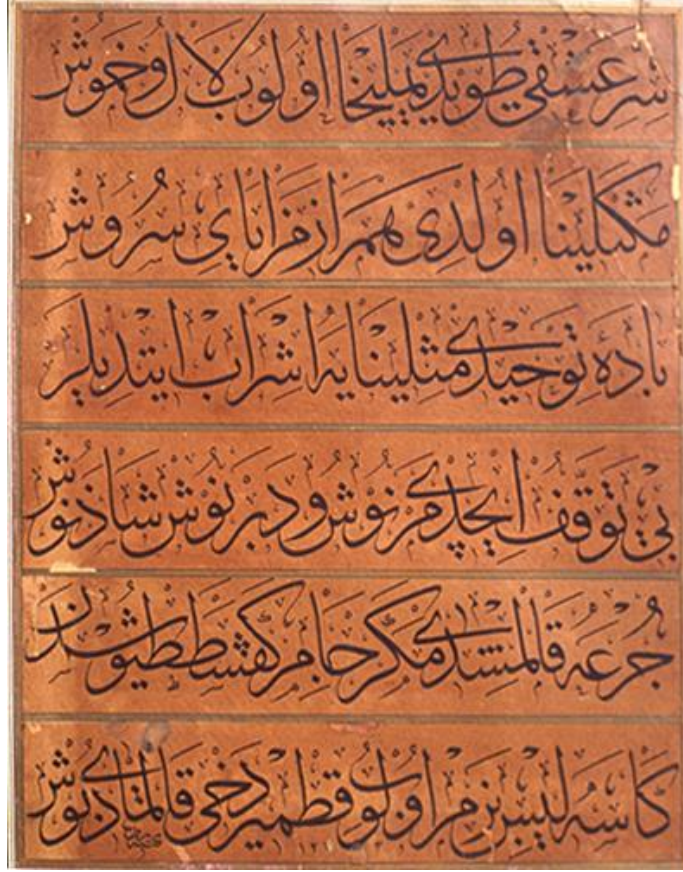 سر عشقی طویدی یملیخا اولوب لال و خموش
مكثلینا اولدی همراز مزایای سروش
باده توحیدی مثلینایه اشراب ایتدیلر
بی توقف ایچدی مرنوش و دبرنوش شاذنوش
جرعه قالمشدی مكر جام كفشططیوشدن
كاسه لیس بزم اولوب قطمیر دخی قالمادی بوش